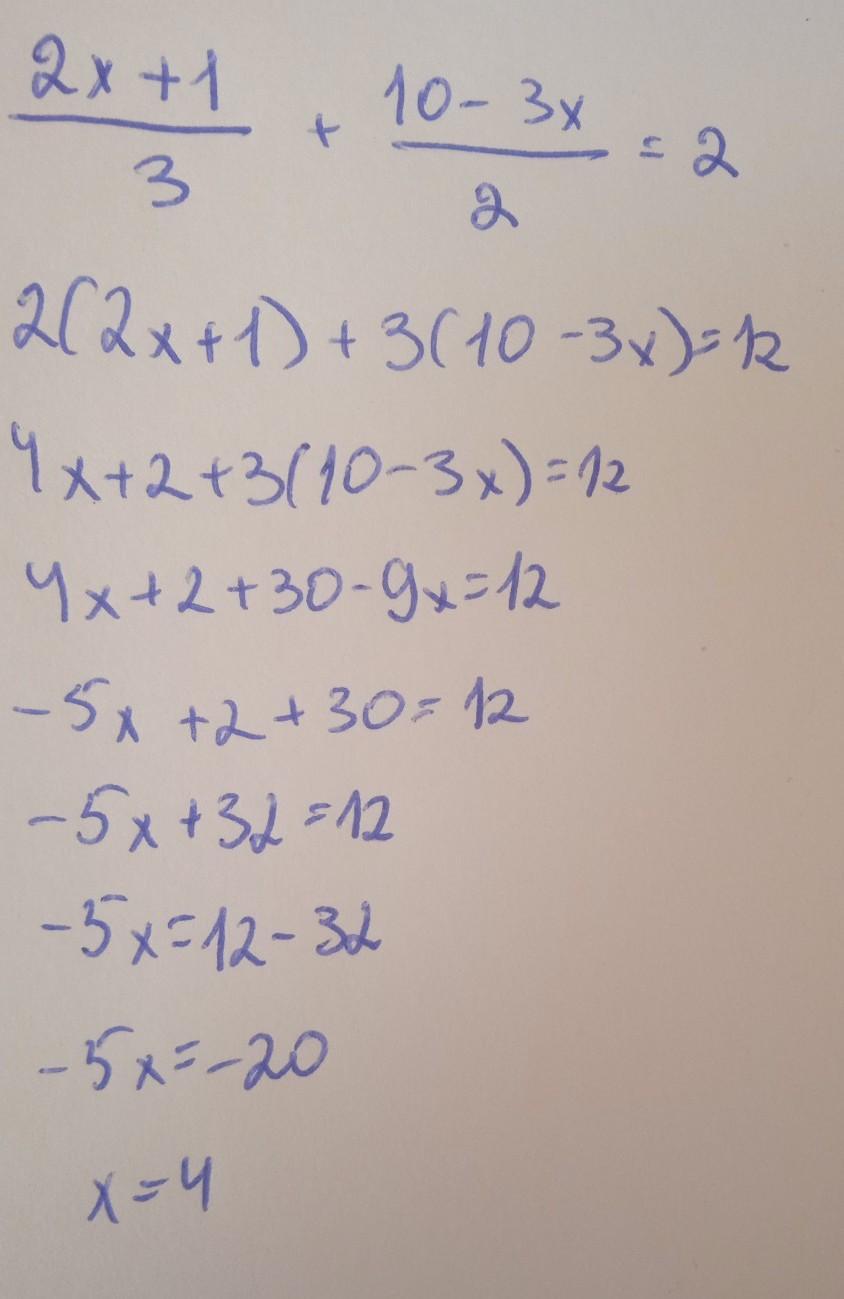 (2x+1)/3 + (10-3x)/2 = 2
2(2x+1)+3(10-3x)=12
4x+2+3(10-3x)=12
4x+2+30-9x=12
-5x+2+30=12
-5x+32=12
-5x=12-32
-5x=-20
x=4